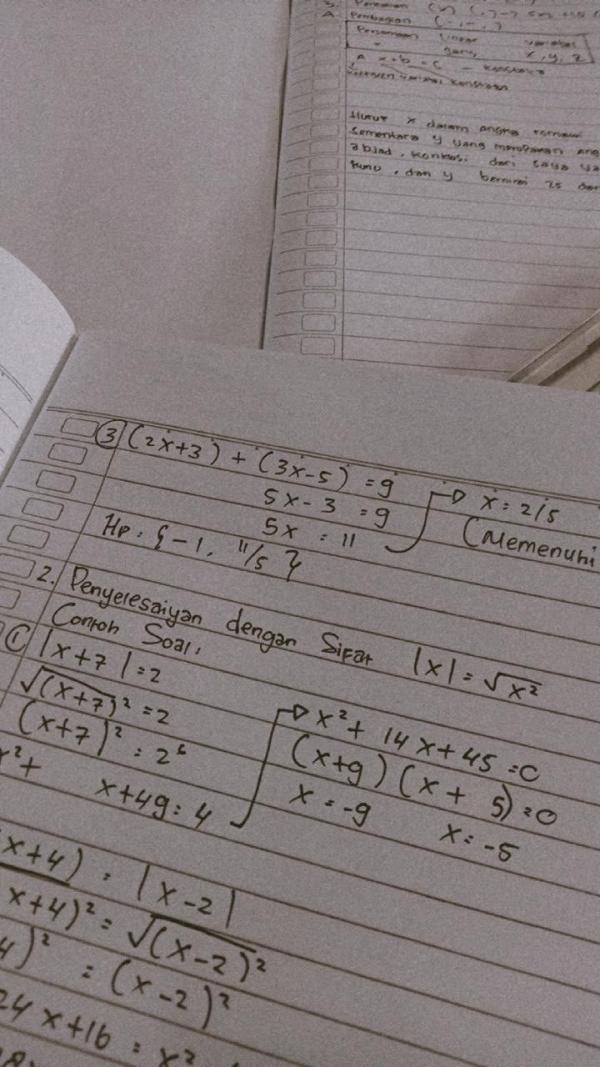 Pembagian
Persamaan linear variabel
garis x, y, z
x + b = c - konstanta
Huruf x dalam angka romawi
sementara y yang merupakan ang
abjad, konversi dari saya ya
kuno, dan y bernilai 25 dan
③ (2x+3) + (3x-5) = 9
5x - 3 = 9
5x = 11
Hp. { -1, 11/5 }
x = 2/5
(Memenuhi
2. Penyelesaiyan dengan Sifat |x| = √x²
Contoh Soal.
① |x+7| = 2
√(x+7)² = 2
(x+7)² = 2²
x² + x + 49 = 4
x² + 14x + 45 = 0
(x+9) (x + 5) = 0
x = -9 x = -5
x+4) = |x-2|
x+4)² = √(x-2)²
4)² = (x-2)²
24x+16 = x²